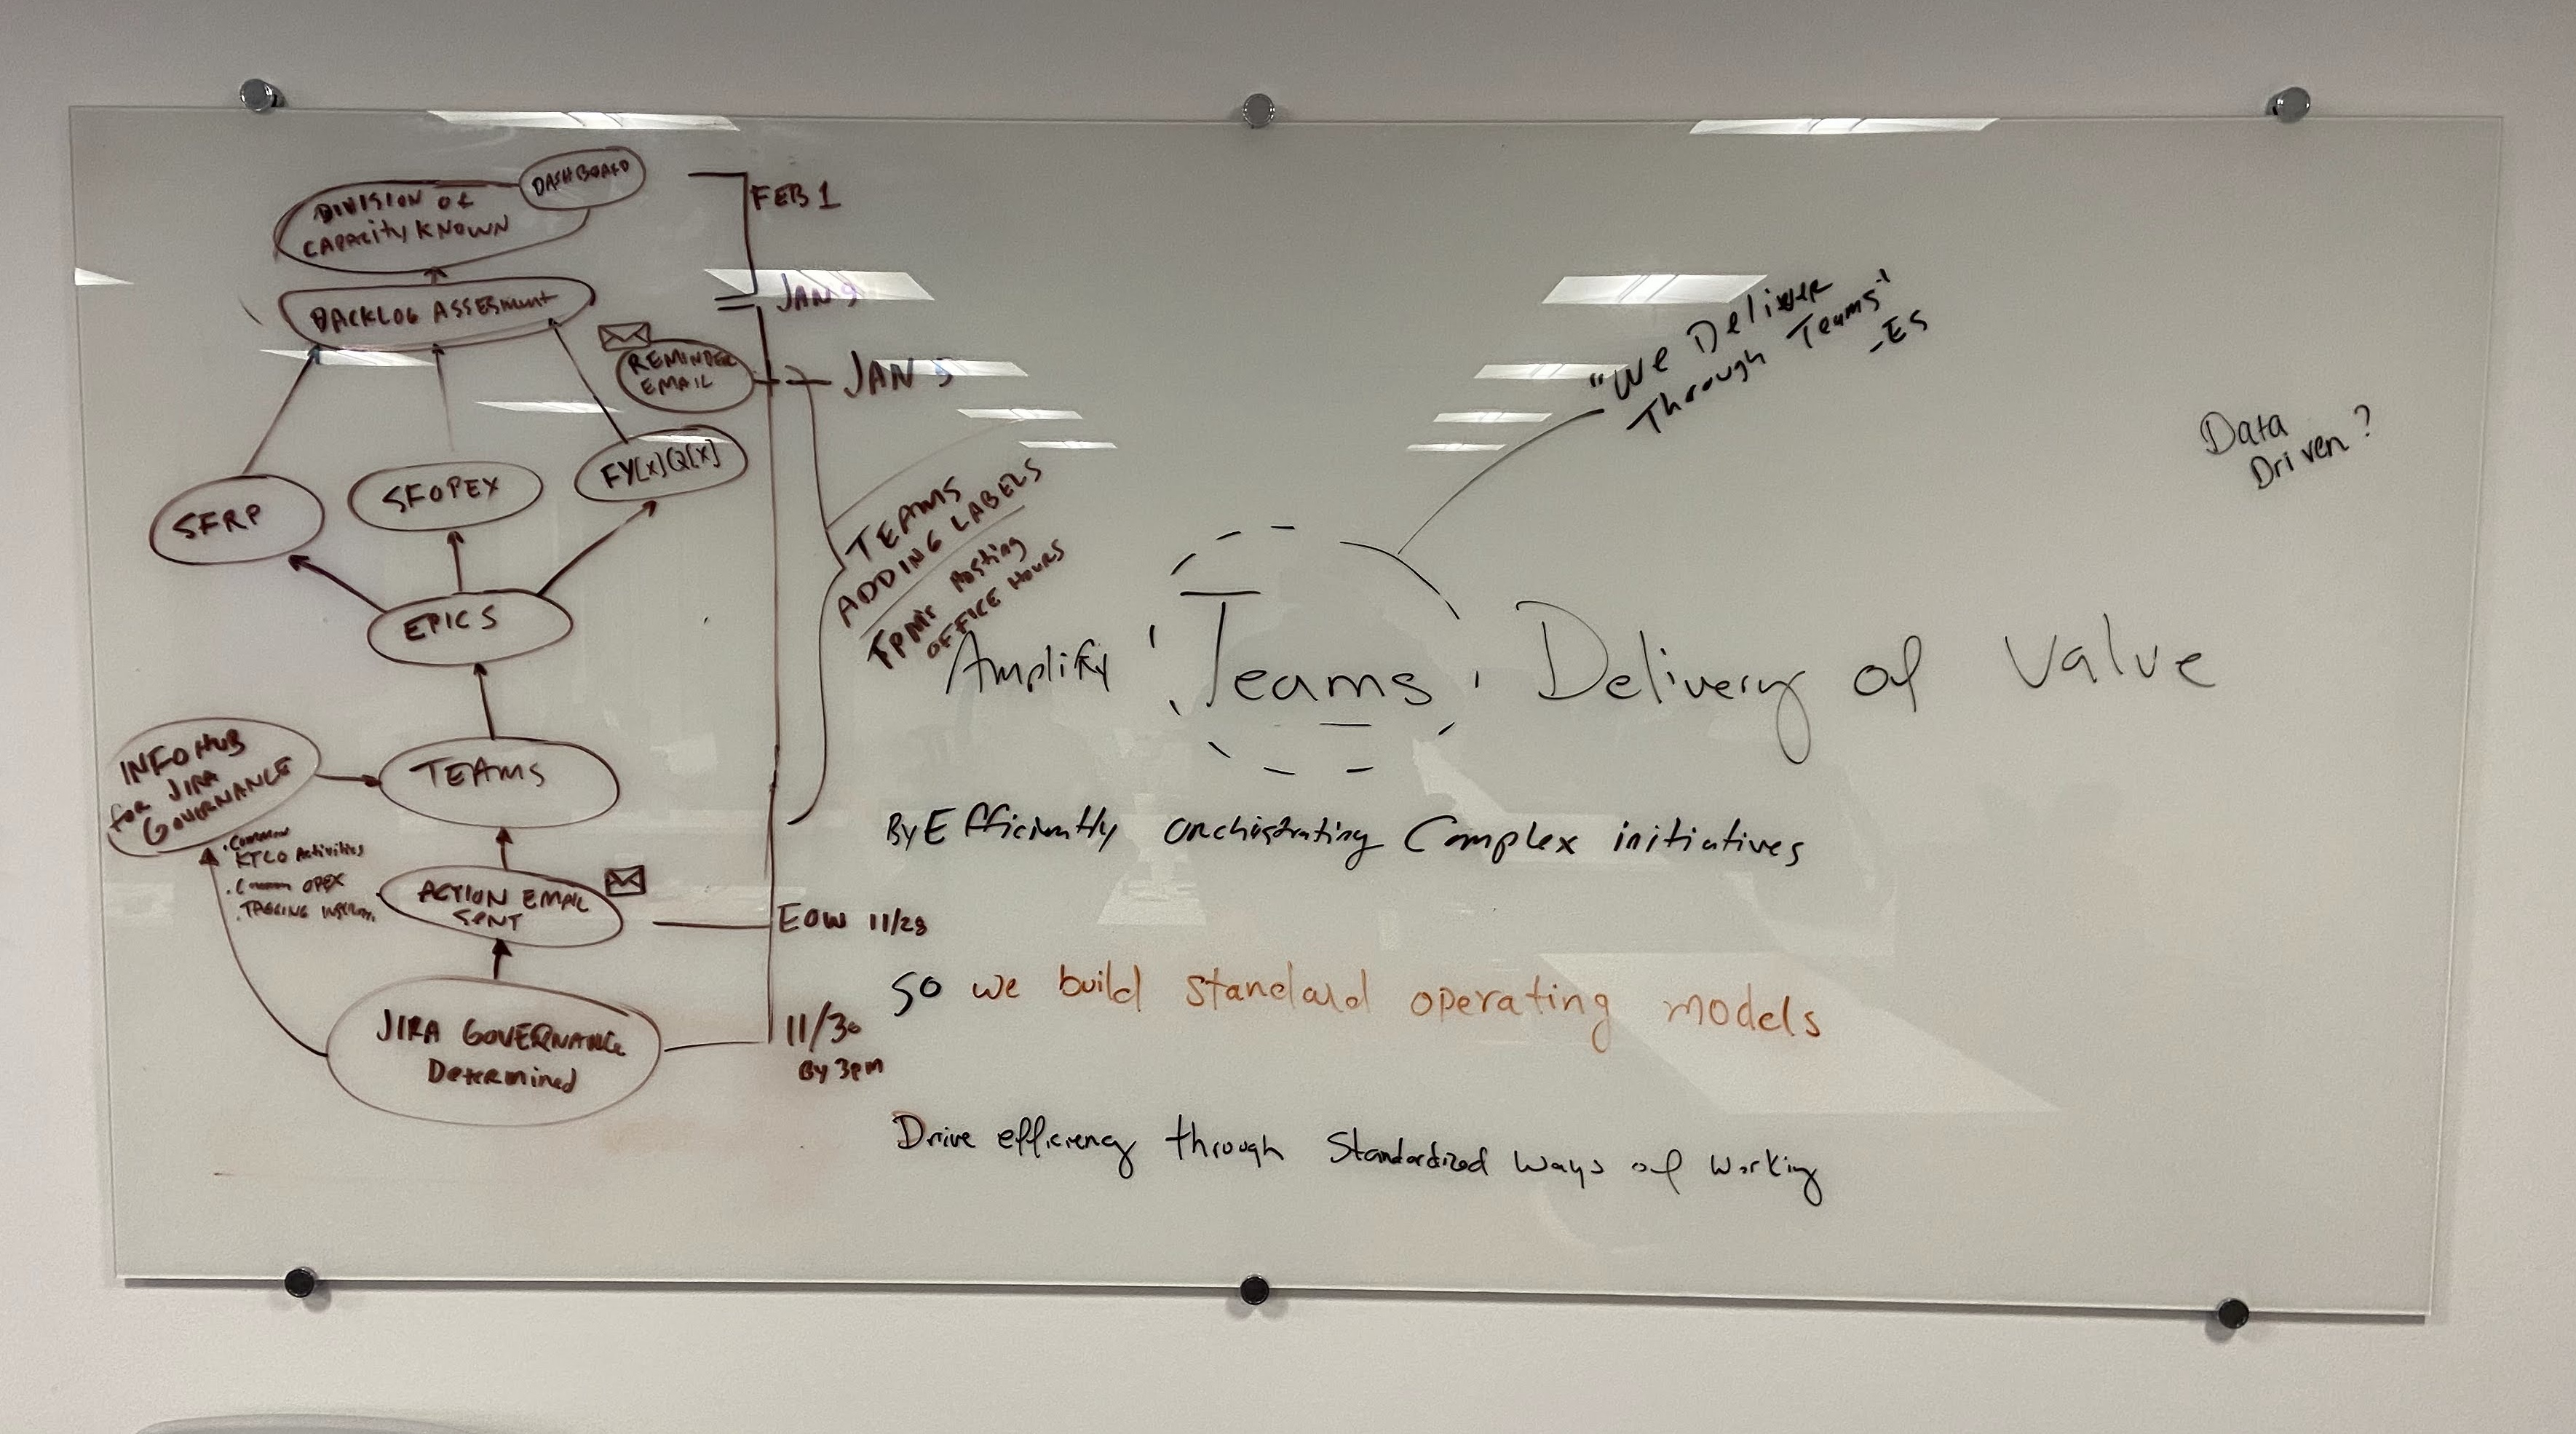 DASHBOARD
DIVISION of
CAPACITY KNOWN
FEB 1
BACKLOG ASSESment
JAN 9
REMINDER
EMAIL
JAN 5
SFRP
SFOPEX
FY[x]Q[x]
TEAMS
ADDING LABELS
FPMs Hosting
OFFICE HOURS
EPICS
INFO HUB
for JIRA
GOVERNANCE
TEAMS
• Common
KTLO Activities
• Common OPEX
• TAGGING
ACTION EMAIL
SENT
EOW 11/28
JIRA GOVERNANCE
Determined
11/30
By 3pm
"We Deliver
Through Teams"
-ES
Data
Driven?
Amplify Teams' Delivery of Value
By Efficiently orchistrating Complex initiatives
So we build standard operating models
Drive efficiency through Standardized Ways of Working